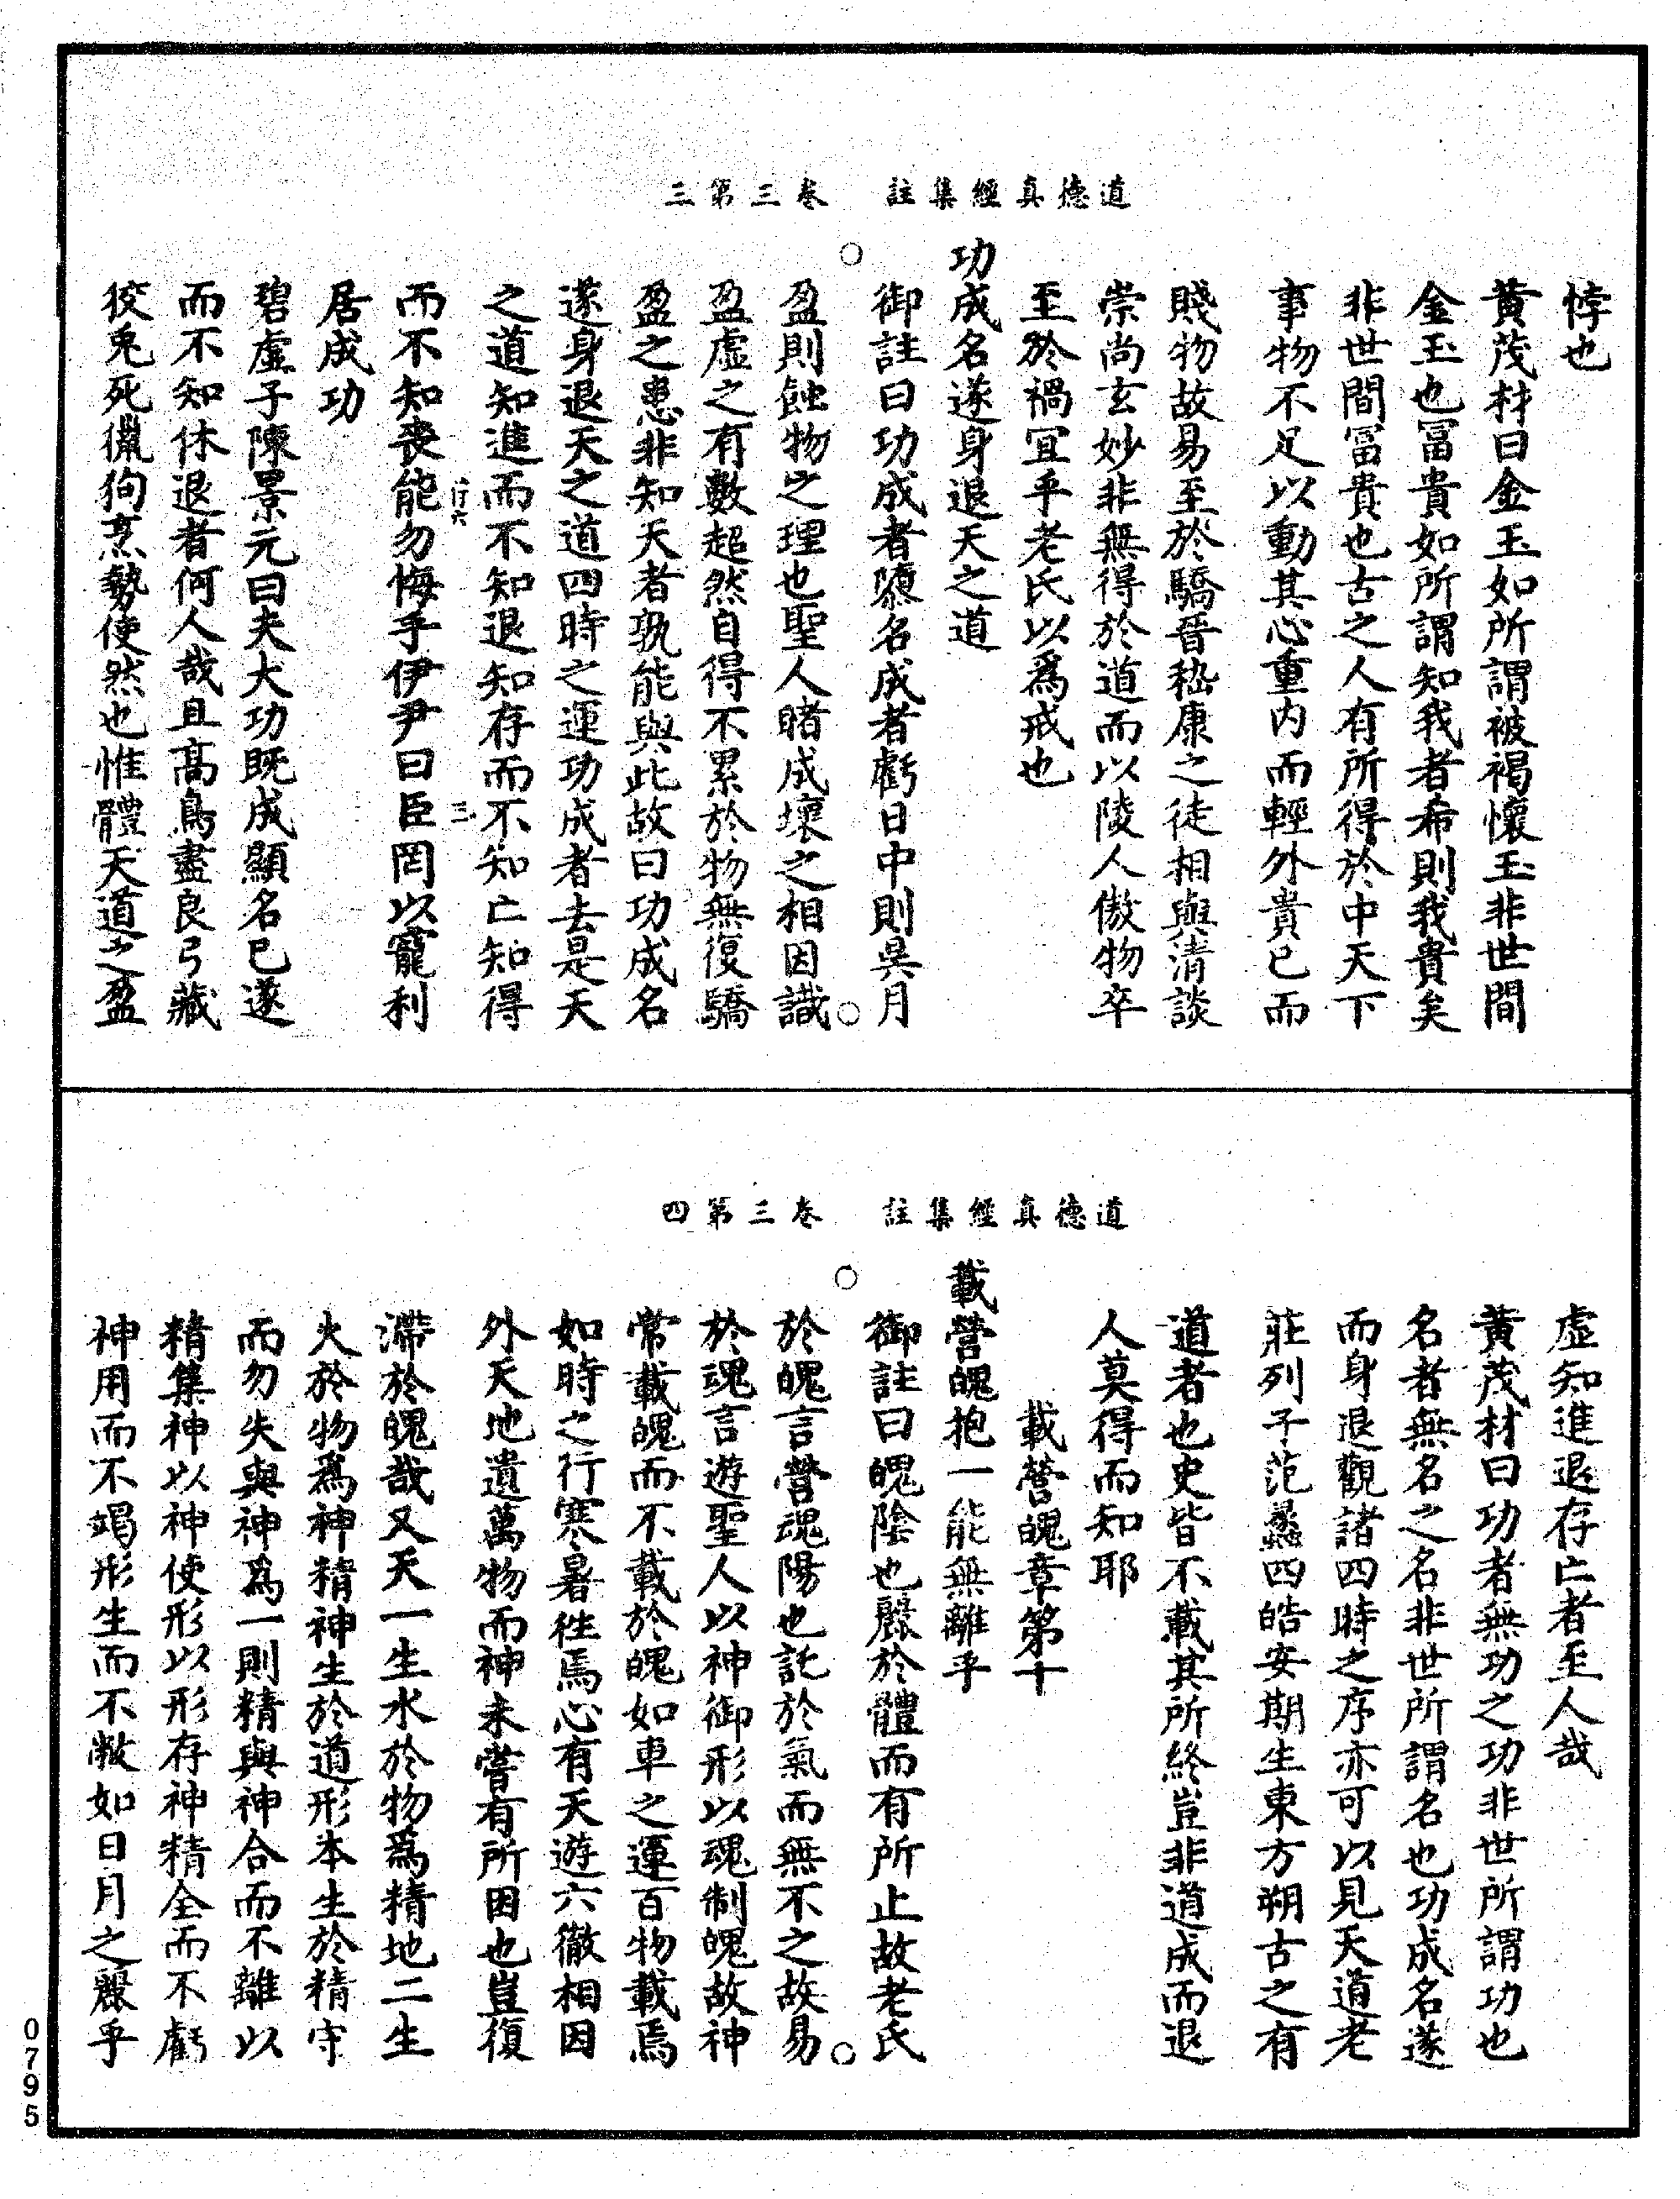 道德真經集註　卷三第三
悖也
黃茂材曰金玉如所謂被褐懷玉非世間
金玉也冨貴如所謂知我者希則我貴矣
非世間冨貴也古之人有所得於中天下
事物不足以動其心重内而輕外貴已而
賤物故易至於驕晉嵇康之徒相與清談
崇尚玄妙非無得於道而以陵人傲物卒
至於禍宜乎老氏以爲戒也
功成名遂身退天之道
御註曰功成者隳名成者虧日中則昃月
盈則蝕物之理也聖人睹成壞之相因識
盈虛之有數超然自得不累於物無復驕
盈之患非知天者孰能與此故曰功成名
遂身退天之道四時之運功成者去是天
之道知進而不知退知存而不知亡知得
行六
三
而不知喪能勿悔乎伊尹曰臣罔以寵利
居成功
碧虛子陳景元曰夫大功既成顯名已遂
而不知休退者何人哉且高鳥盡良弓藏
狡兎死獵狗烹勢使然也惟體天道之盈
道德真經集註　卷三第四
虛知進退存亡者至人哉
黃茂材曰功者無功之功非世所謂功也
名者無名之名非世所謂名也功成名遂
而身退觀諸四時之序亦可以見天道老
莊列子范蠡四皓安期生東方朔古之有
道者也史皆不載其所終豈非道成而退
人莫得而知耶
載營魄章第十
載營魄抱一能無離乎
御註曰魄陰也麗於體而有所止故老氏
於魄言營魂陽也託於氣而無不之故易
於魂言遊聖人以神御形以魂制魄故神
常載魄而不載於魄如車之運百物載焉
如時之行寒暑徃焉心有天遊六徹相因
外天地遺萬物而神未嘗有所困也豈復
滯於魄哉又天一生水於物爲精地二生
火於物爲神精神生於道形本生於精守
而勿失與神爲一則精與神合而不離以
精集神以神使形以形存神精全而不虧
神用而不竭形生而不敝如日月之麗乎
0795